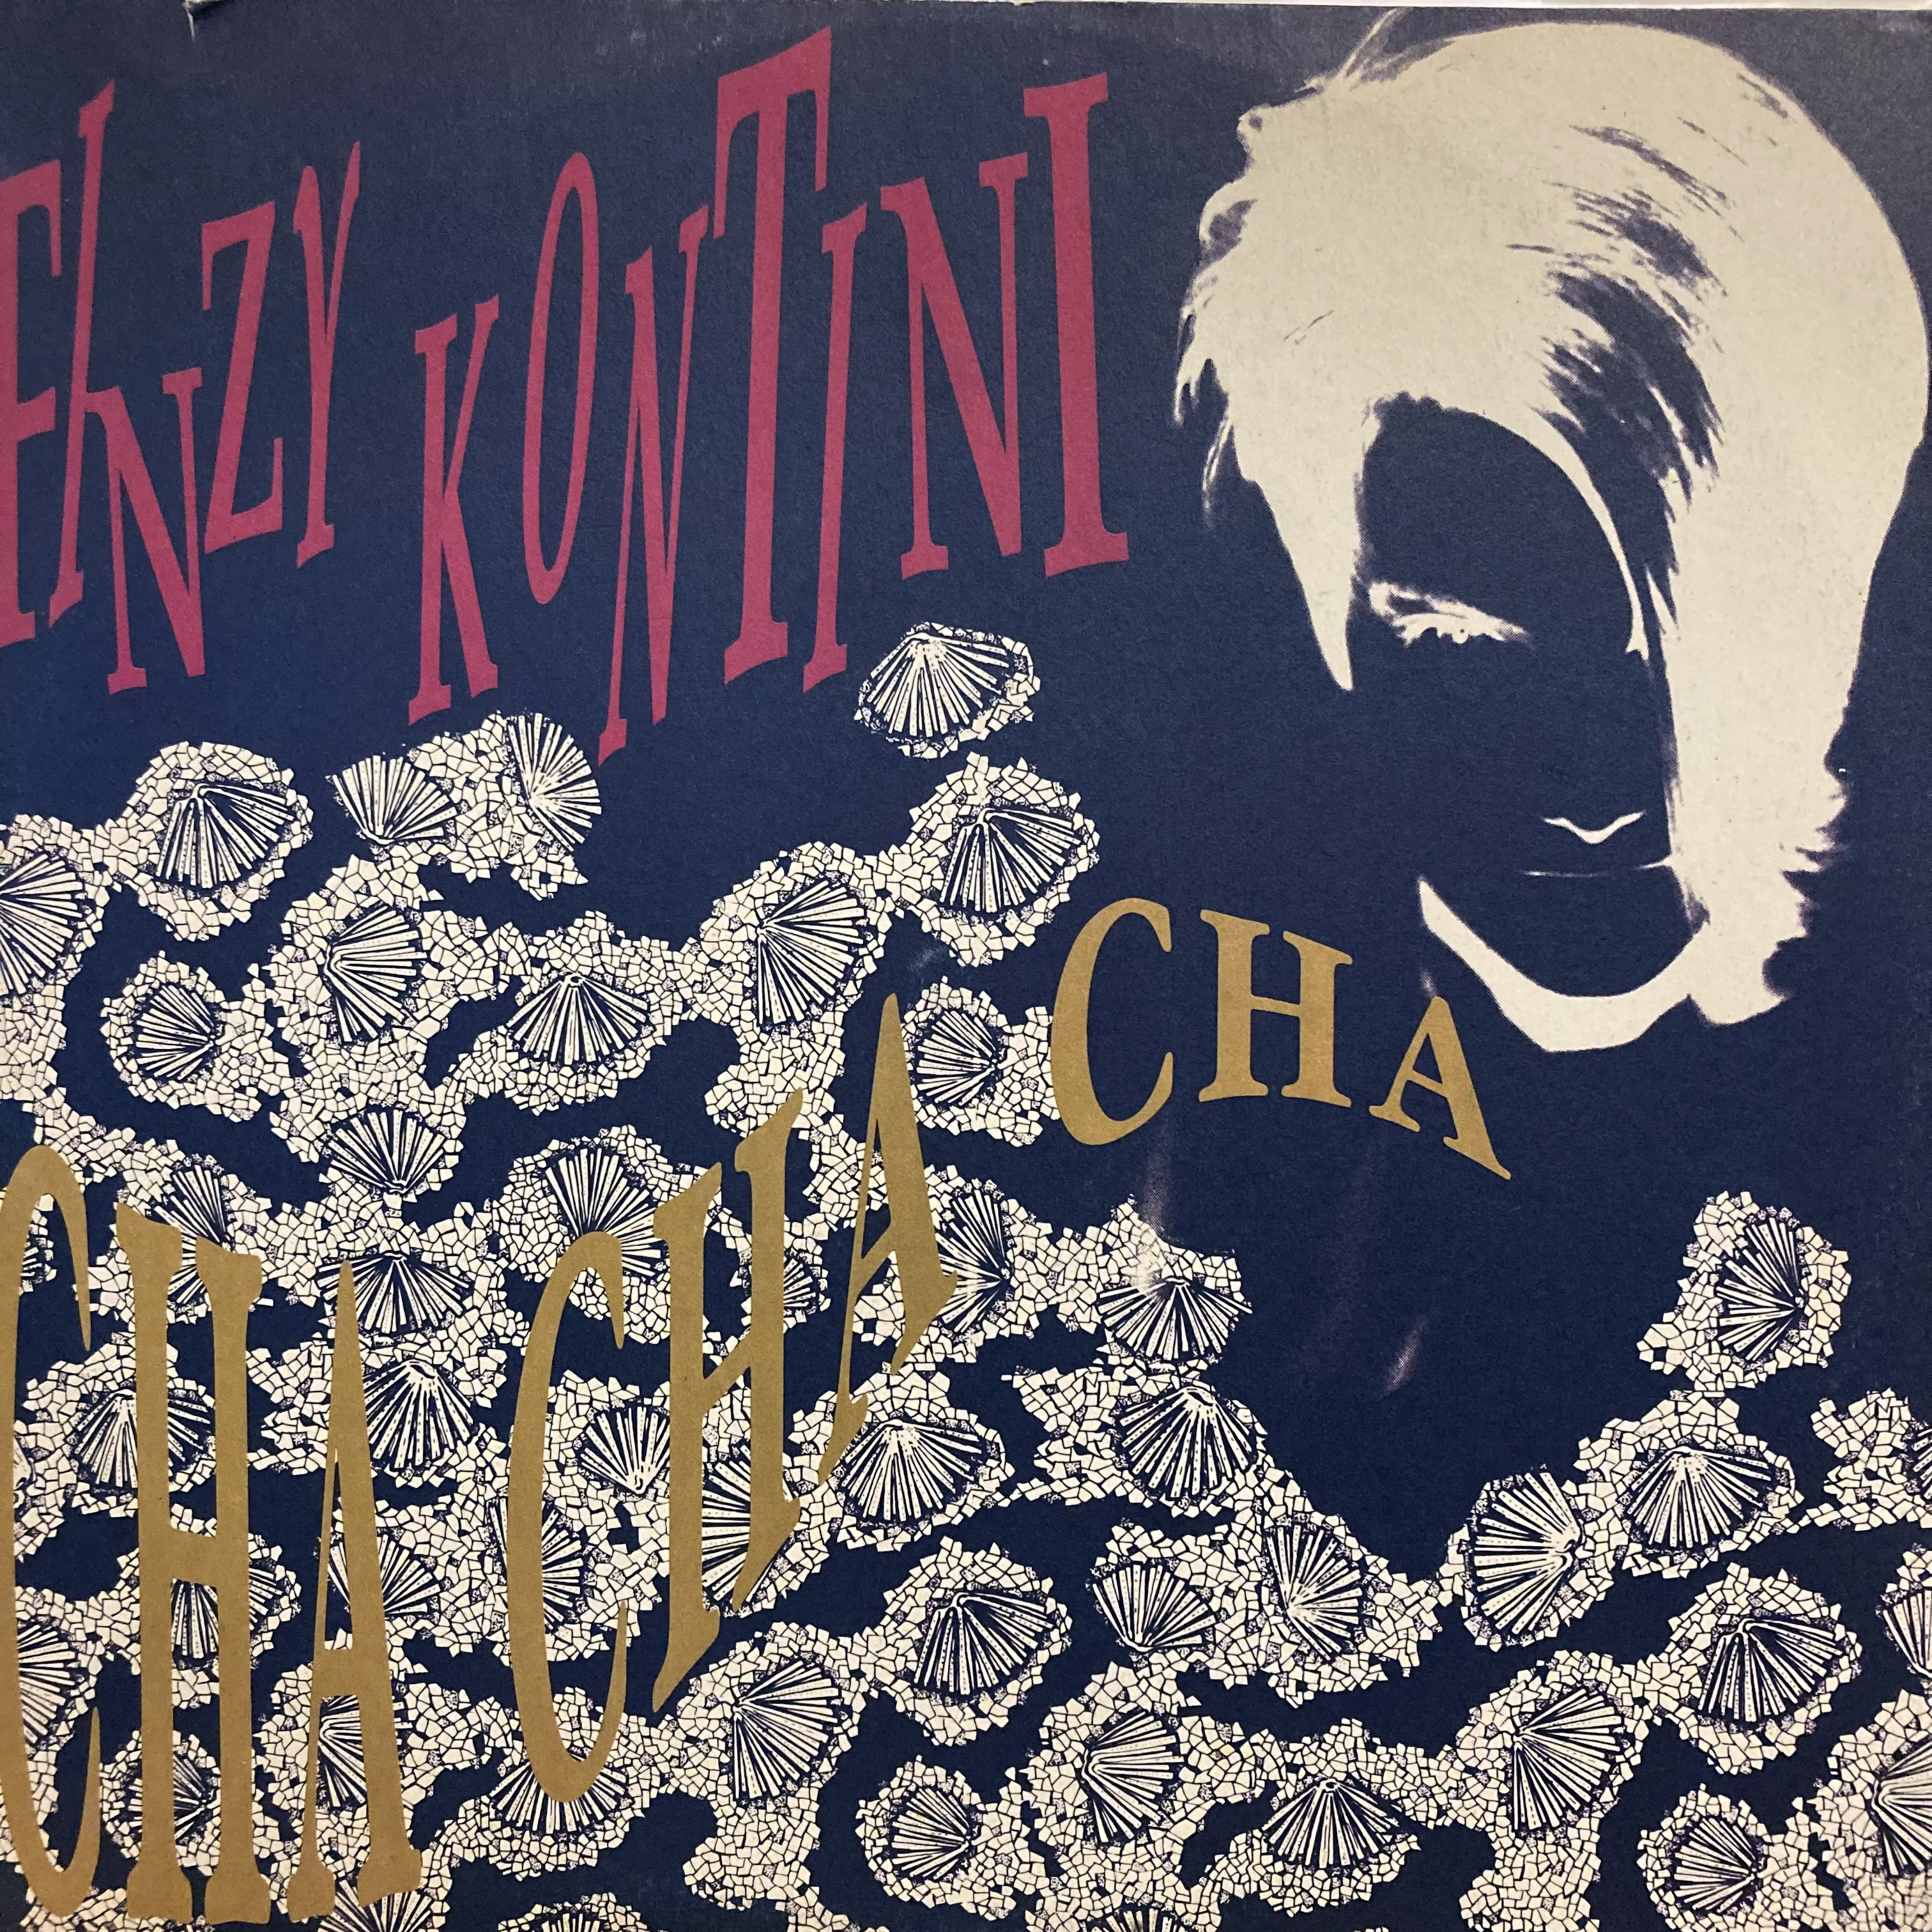 FINZY KONTINI
CHA CHA CHA